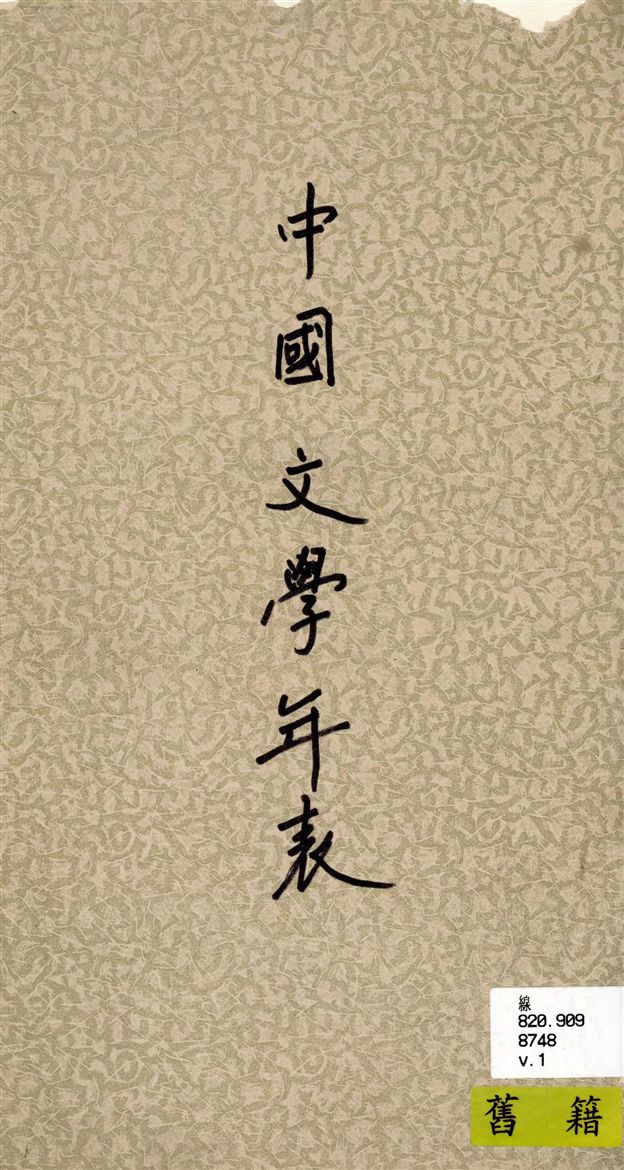 中國文學年表
線
820.909
8748
v.1
舊籍